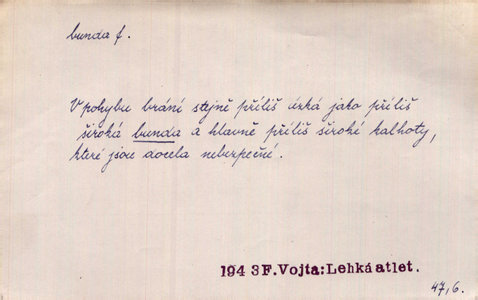 bunda f.
V pohybu brání stejně příliš úzká jako příliš
široká bunda a hlavně příliš široké kalhoty,
které jsou docela nebezpečné.
194 3 F. Vojta: Lehká atlet.
47,6.